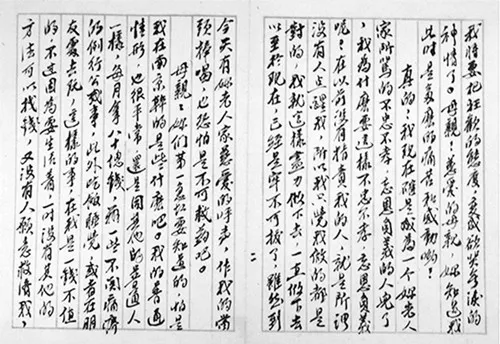 我將要把狂歡的態度變成欲哭無淚的
神情了。母親!慈愛的母親,妳知道我
此時是多麼的痛苦和感動喲!
真的!我現在雖是成為一個妳老人
家所罵的不忠不孝,忘恩負義的人兒了
,我為什麼要這樣不忠不孝,忘恩負義
呢?在以前沒有指責我的人,就是所謂
沒有人点醒我,所以我只覺我做的都是
對的,我就這樣盡力做下去,一直做下去
以至於現在,已經是牢不可拔了,雖然到
二
今天有妳老人家慈愛的呼聲,作我的當
頭棒喝,也恐怕是不可救药吧。
母親!妳們第一急於要知道的,怕是
我在南京幹的是些什麼吧。我的普通
情形,也很平常,還是同其他的是普通人
一樣,每月拿八十塊錢,辦一些不關痛癢
的例行公式事,此外吃飯睡覺,或者在朋
友處去玩,這樣的事,在我是一錢不值
的不過因為要生活着一時沒有其他的
方法可以找錢,又沒有人願意救濟我,